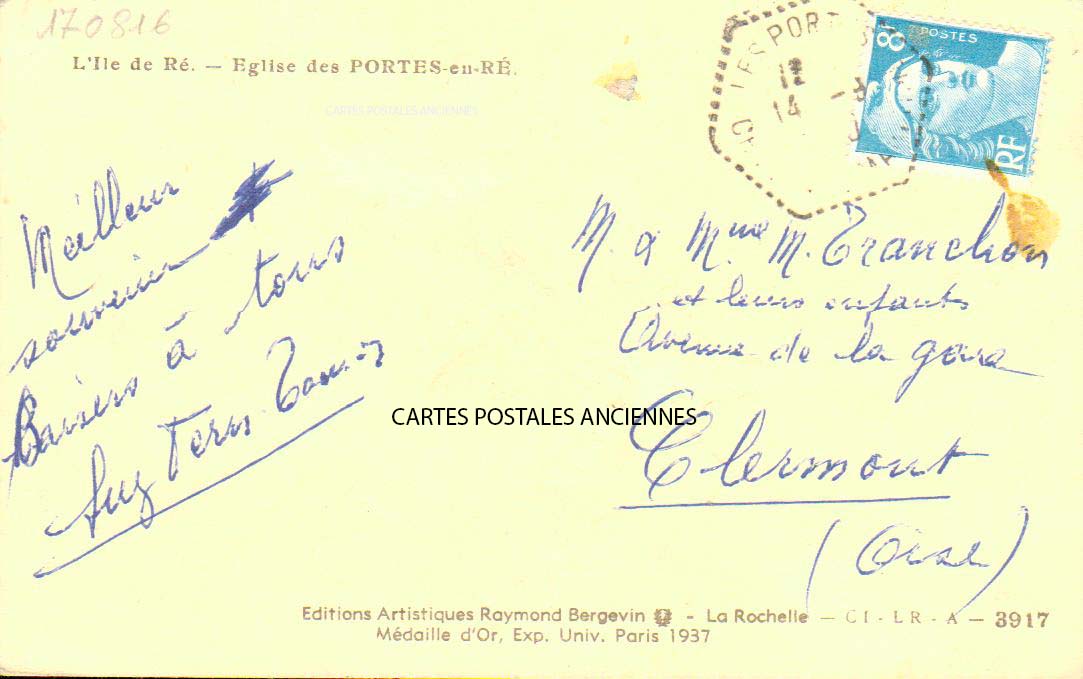 170816
L'Ile de Ré. — Eglise des PORTES-en-RÉ.
CARTES POSTALES ANCIENNES
LES PORT
12
14 - 8
8F POSTES
RF
Meilleur
souvenir
Baisers à tous
M. & Mme M. Tranchon
et leurs enfants
Avenue de la gare
Clermont
(Oise)
CARTES POSTALES ANCIENNES
Editions Artistiques Raymond Bergevin - La Rochelle — CI - LR - A — 3917
Médaille d'Or, Exp. Univ. Paris 1937